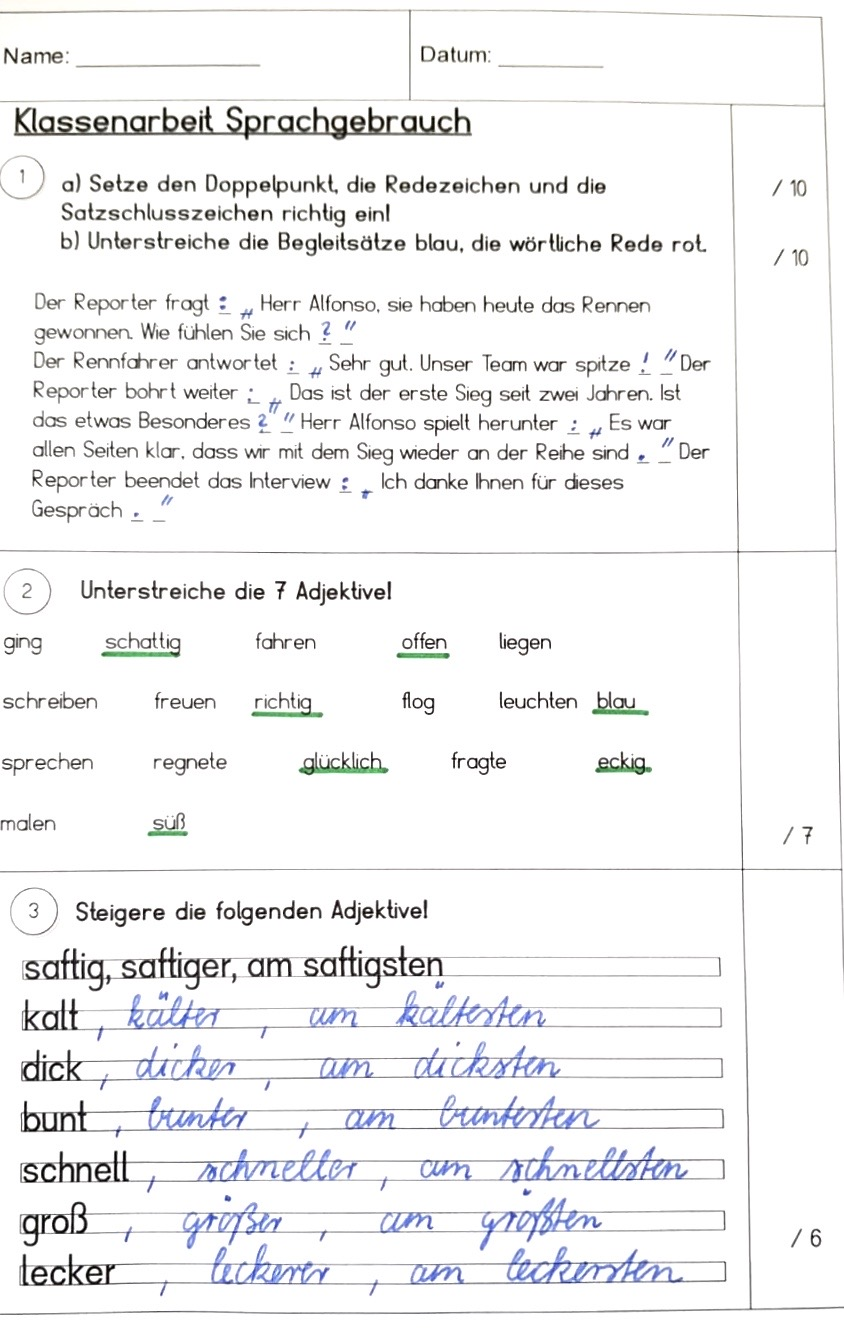 Name: ____________ Datum: _______
Klassenarbeit Sprachgebrauch
1 a) Setze den Doppelpunkt, die Redezeichen und die / 10
Satzschlusszeichen richtig ein!
b) Unterstreiche die Begleitsätze blau, die wörtliche Rede rot. / 10
Der Reporter fragt : „ Herr Alfonso, sie haben heute das Rennen
gewonnen. Wie fühlen Sie sich ? “
Der Rennfahrer antwortet : „ Sehr gut. Unser Team war spitze ! “ Der
Reporter bohrt weiter : „ Das ist der erste Sieg seit zwei Jahren. Ist
das etwas Besonderes ? “ Herr Alfonso spielt herunter : „ Es war
allen Seiten klar, dass wir mit dem Sieg wieder an der Reihe sind . “ Der
Reporter beendet das Interview : „ Ich danke Ihnen für dieses
Gespräch . “
2 Unterstreiche die 7 Adjektive!
ging schattig fahren offen liegen
schreiben freuen richtig flog leuchten blau
sprechen regnete glücklich fragte eckig
malen süß / 7
3 Steigere die folgenden Adjektive!
saftig, saftiger, am saftigsten
kalt , kälter , am kältesten
dick , dicker , am dicksten
bunt , bunter , am buntesten
schnell , schneller , am schnellsten
groß , größer , am größten / 6
lecker , leckerer , am leckersten